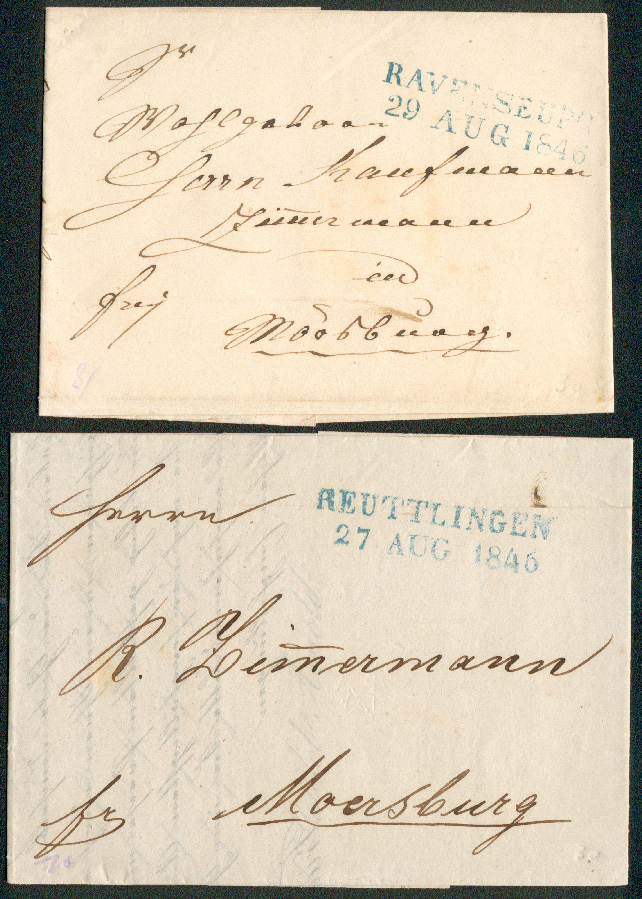 Sr
RAVENSBURG
29 AUG 1846
Wohlgeboren
Herrn Kaufmann
Zimmermann
in
frey
Mörsburg.
Herrn
REUTTLINGEN
27 AUG 1846
R. Zimmermann
fr
Moersburg